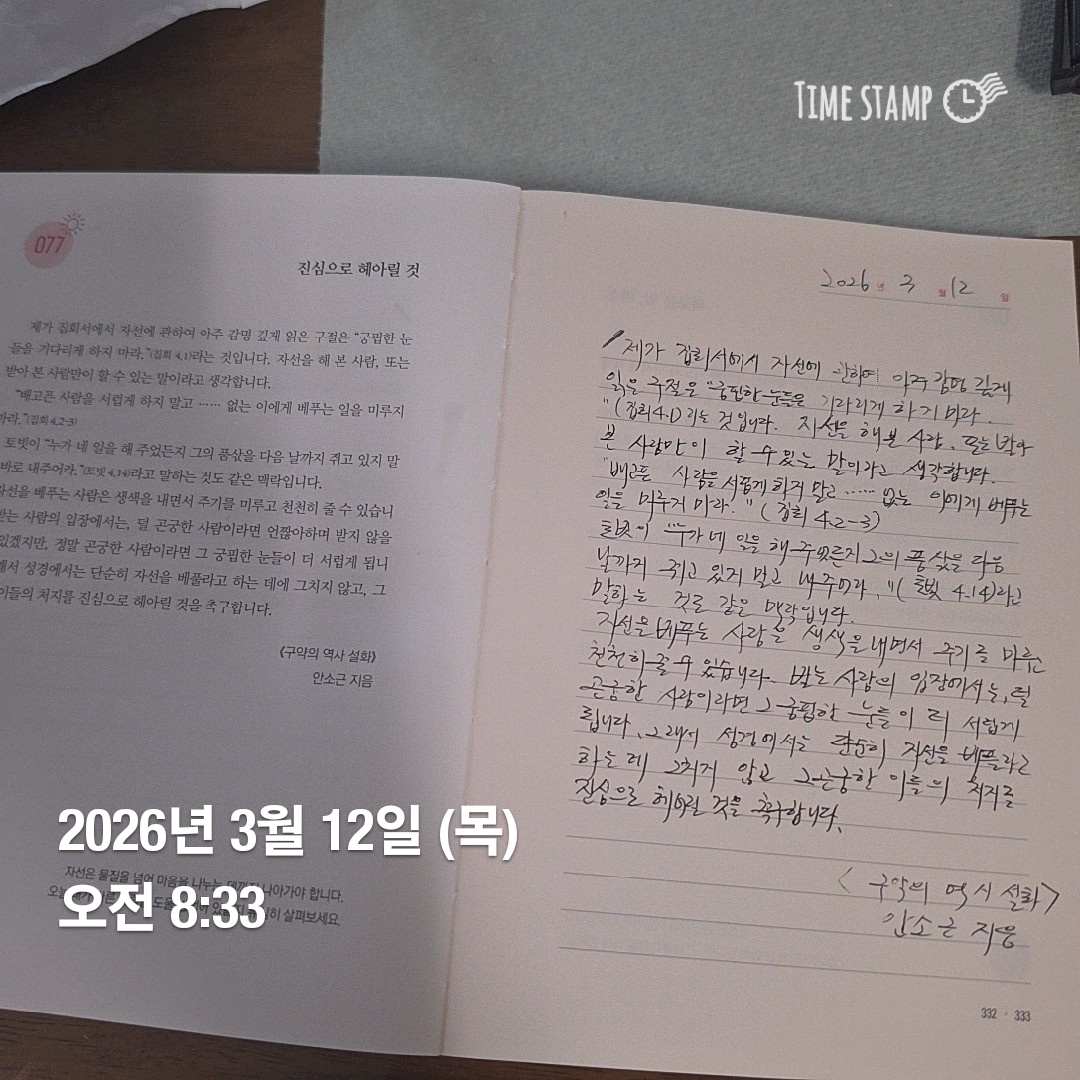 TIME STAMP
077
진심으로 헤아릴 것
제가 집회서에서 자선에 관하여 아주 감명 깊게 읽은 구절은 “궁핍한 눈
들을 기다리게 하지 마라.”(집회 4,1)라는 것입니다. 자선을 해 본 사람, 또는
받아 본 사람만이 할 수 있는 말이라고 생각합니다.
“배고픈 사람을 서럽게 하지 말고 …… 없는 이에게 베푸는 일을 미루지
마라.”(집회 4,2-3)
토빗이 “누가 네 일을 해 주었든지 그의 품삯을 다음 날까지 쥐고 있지 말
바로 내주어라.”(토빗 4,14)라고 말하는 것도 같은 맥락입니다.
자선을 베푸는 사람은 생색을 내면서 주기를 미루고 천천히 줄 수 있습니
받는 사람의 입장에서는, 덜 곤궁한 사람이라면 언짢아하며 받지 않을
있겠지만, 정말 곤궁한 사람이라면 그 궁핍한 눈들이 더 서럽게 됩니
해서 성경에서는 단순히 자선을 베풀라고 하는 데에 그치지 않고, 그
이들의 처지를 진심으로 헤아릴 것을 촉구합니다.
《구약의 역사 설화》
안소근 지음
자선은 물질을 넘어 마음을 나누는 나아가야 합니다.
살펴보세요.
2026년 3월 12일 (목)
오전 8:33
2026 년 3 월 12 일
제가 집회서에서 자선에 관하여 아주 감명 깊게
읽은 구절은 “궁핍한 눈들은 기다리게 하지 마라.
”(집회4.1) 라는 것입니다. 자선을 해본 사람, 또는 받아
본 사람만이 할 수 있는 말이라고 생각합니다.
“배고픈 사람을 서럽게 하지 말고 …… 없는 이에게 베푸는
일을 미루지 마라.” (집회 4.2-3)
토빗이 “누가 네 일을 해 주었든지 그의 품삯을 다음
날까지 쥐고 있지 말고 내주어라.”(토빗 4.14)라고
말하는 것도 같은 맥락입니다.
자선을 베푸는 사람은 생색을 내면서 주기를 미루고
천천히 줄 수 있습니다. 받는 사람의 입장에서는, 덜
곤궁한 사람이라면 그 궁핍한 눈들이 더 서럽게
됩니다. 그래서 성경에서는 단순히 자선을 베풀라고
하는데 그치지 않고 그 곤궁한 이들의 처지를
진심으로 헤아릴 것을 촉구합니다.
<구약의 역사 설화>
안소근 지음
332 · 333